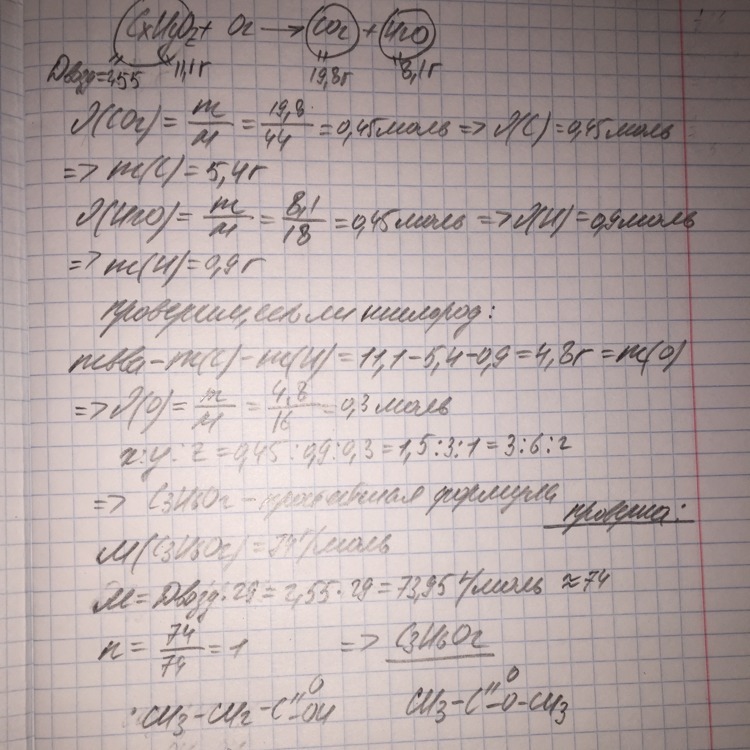 CxHyOz + O2 → CO2 + H2O
Dвозд=2,55 11,1г 19,8г 8,1г
ν(CO2) = m/M = 19,8/44 = 0,45моль => ν(C) = 0,45моль
=> m(C) = 5,4г
ν(H2O) = m/M = 8,1/18 = 0,45моль => ν(H) = 0,9моль
=> m(H) = 0,9г
проверим, есть ли кислород:
mв-ва - m(C) - m(H) = 11,1-5,4-0,9 = 4,8г = m(O)
=> ν(O) = m/M = 4,8/16 = 0,3моль
x:y:z = 0,45:0,9:0,3 = 1,5:3:1 = 3:6:2
=> C3H6O2 - простейшая формула
проверка:
M(C3H6O2) = 74г/моль
M = Dвозд·29 = 2,55·29 = 73,95г/моль ≈ 74
n = 74/74 = 1 => C3H6O2
CH3-CH2-C(=O)-OH CH3-C(=O)-O-CH3